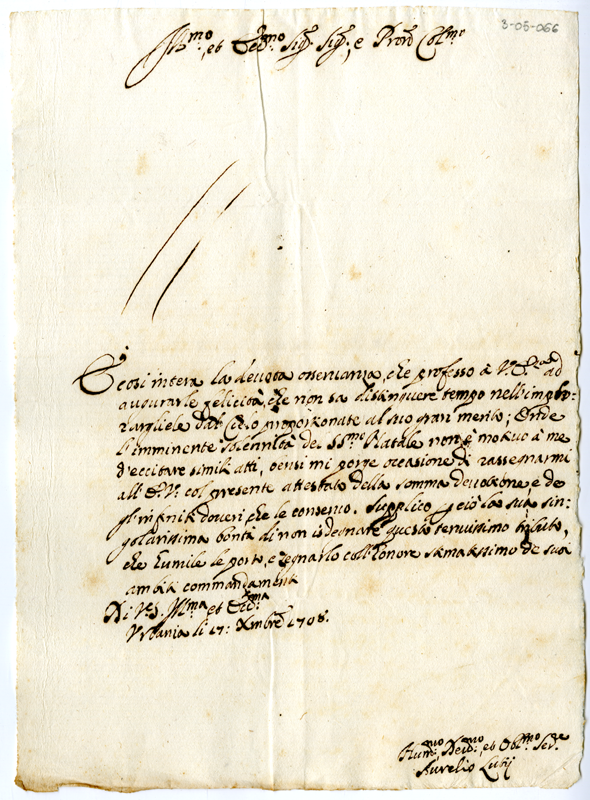 3-05-066
Ill.mo et Ecc.mo Sig.r Sig.r, e Pron. Col.mo
È così intera la devota osservanza, che professo à V. Ecc.za ad
augurarle felicità, che non sa distinguere tempo nell'impro-
rargliele dal Cielo proporzionate al suo gran merito; Onde
l'imminente solennità del SS.mo Natale non è motivo à me
d'eccitare simili atti, bensi mi porge occasione di rassegnarmi
all' E. V. col presente attestato della somma devozione, e de
gl'infiniti doveri che le conservo. Supplico p ciò la sua sin-
golarissima bontà di non isdegnare questo tenuissimo tributo,
che humile le porto, e segnarlo coll'honore stimatissimo de suoi
ambiti commandamenti
Di V. S. Ill.ma et Ecc.ma
Urbania li 17: Xmbre 1708.
Hum.mo Dev.mo, et Obl.mo Ser.e
Aurelio Lutij